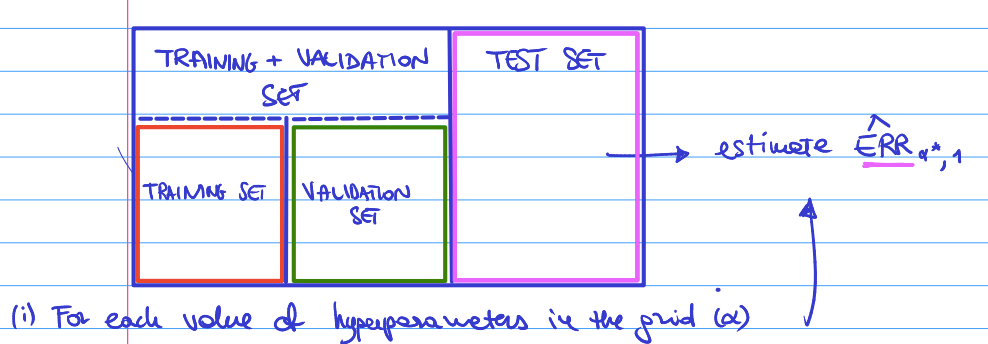 TRAINING + VALIDATION
SET
TEST SET
TRAINING SET
VALIDATION
SET
estimate ÊRR α*, 1
(i) For each value of hyperparameters in the grid (α)